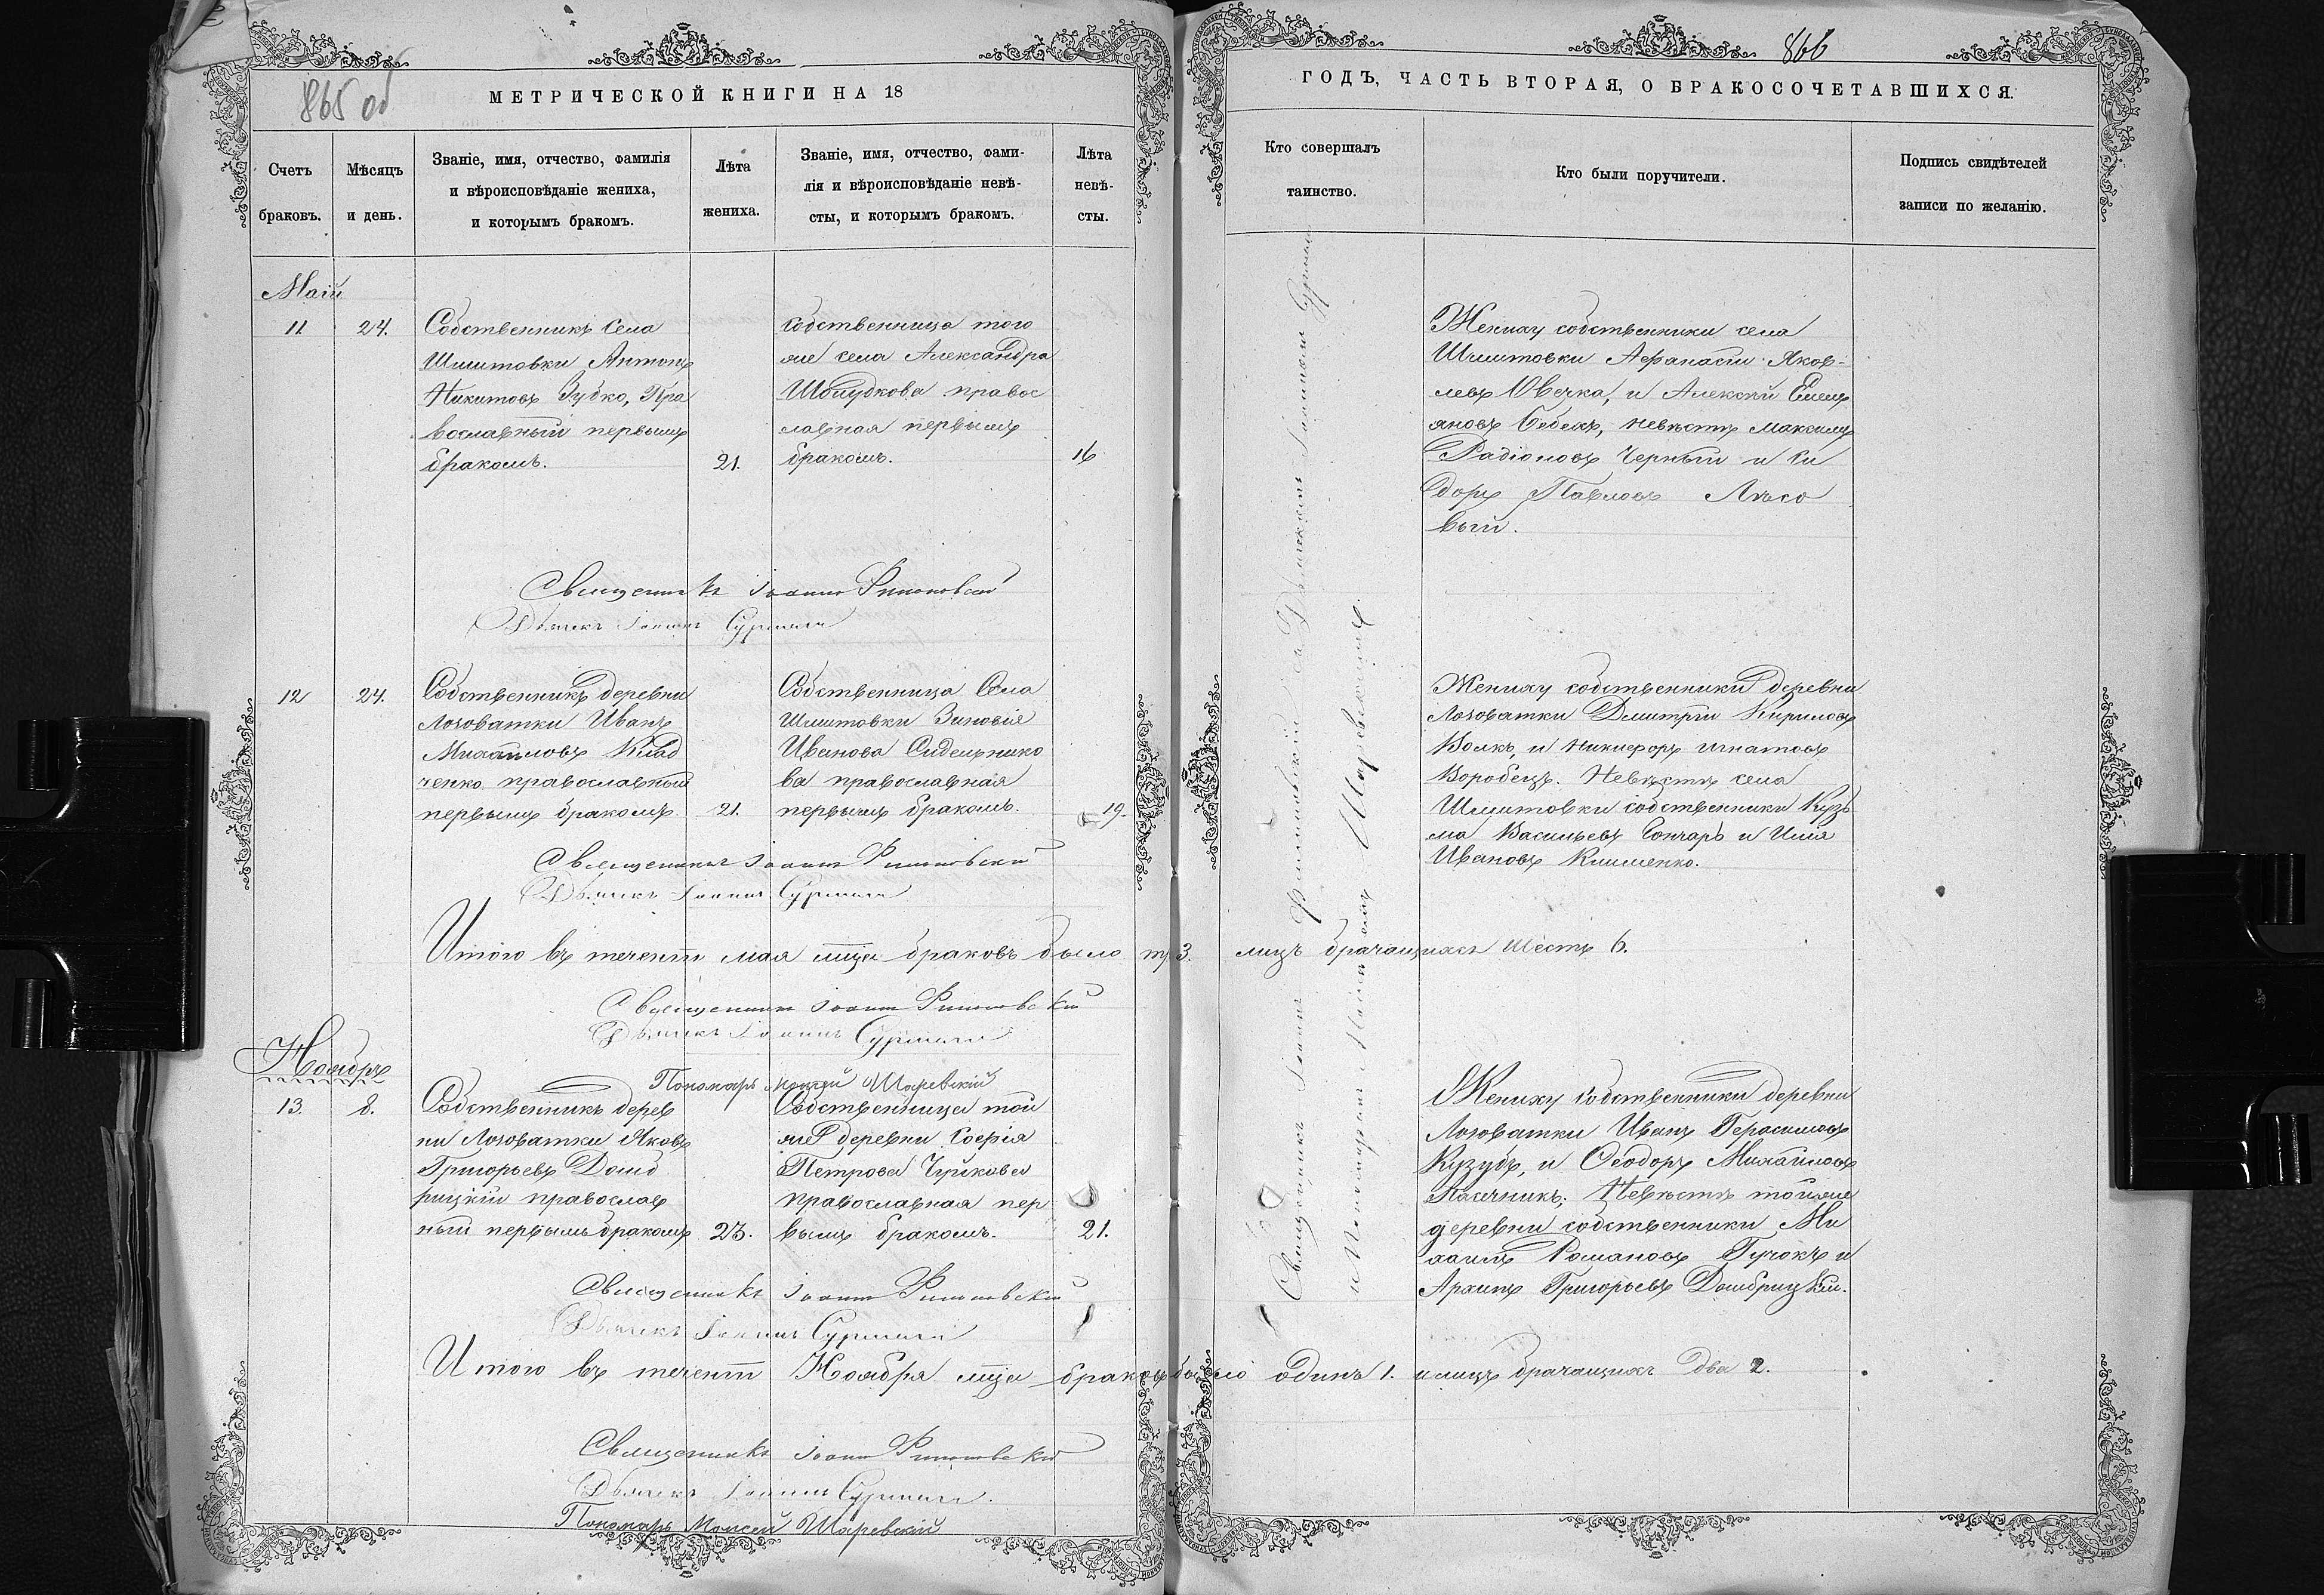 865 об
МЕТРИЧЕСКОЙ КНИГИ НА 18
Счетъ браковъ.
Мѣсяцъ и день.
Званіе, имя, отчество, фамилія
и вѣроисповѣданіе жениха,
и которымъ бракомъ.
Лѣта
жениха.
Званіе, имя, отчество, фами-
лія и вѣроисповѣданіе невѣ-
сты, и которымъ бракомъ.
Лѣта
невѣ-
сты.
Маій
11. 24.
Собственникъ села
Шмитовки Антонъ
Никитовъ Зубко, Пра
вославный первымъ
бракомъ.
21.
собственница того
же села Александра
православная первымъ
бракомъ.
16
Священникъ Іоаннъ
Дьячекъ Іоаннъ
12 24.
Собственникъ деревни
Лозоватки Иванъ
Михайловъ Клад
ченко православный
первымъ бракомъ
21.
Собственница Села
Шмитовки Зиновія
Иванова Сидельнико
ва православная
первымъ бракомъ.
19.
Священникъ Іоаннъ
Дьячекъ Іоаннъ
Итого въ теченіи мая мца браковъ было 3.
Священникъ Іоаннъ
Дьячекъ Іоаннъ
Пономарь Моисей Шаревскій
Ноябрь
13. 8.
Собственникъ дерев
ни Лозоватки Яковъ
Григорьевъ Домб
рицкій православ
ный первымъ бракомъ
23.
Собственница той
же деревни Софія
Петрова Чуйкова
православная пер
вымъ бракомъ.
21.
Священникъ Іоаннъ
Дьячекъ Іоаннъ
Итого въ теченіи Ноября мца браковъ было
Священникъ Іоаннъ
Дьячекъ Іоаннъ
Пономарь Моисей Шаревскій
866
ГОДЪ, ЧАСТЬ ВТОРАЯ, О БРАКОСОЧЕТАВШИХСЯ.
Кто совершалъ
таинство.
Кто были поручители.
Подпись свидѣтелей
записи по желанію.
Священникъ Іоаннъ съ Дьячкомъ Іоанномъ
и Пономаремъ Моисеемъ Шаревскимъ.
Жениху собственники села
Шмитовки Афанасій Яков-
левъ Ювечка, и Алексій Емель
яновъ Бебехъ, невѣстѣ Максимъ
Радіоновъ Черный и Си
доръ Павловъ Лѣсо
вый.
Жениху собственники деревни
Лозоватки Дмитрій Кириловъ
Волкъ, и Никифоръ Игнатовъ
Воробецъ. Невѣстѣ села
Шмитовки собственники Кузь
ма Васильевъ Гончаръ и Илія
Ивановъ Клименко.
лицъ брачащихся шесть 6.
Жениху собственники деревни
Лозоватки Иванъ Герасимовъ
Кузубъ, и Ѳеодоръ Михайловъ
Пасечникъ; Невѣстѣ той же
деревни собственники Ми
хаилъ Романовъ Гучокъ и
Архипъ Григорьевъ Домбрицкій.
одинъ 1. и лицъ брачащихся два 2.